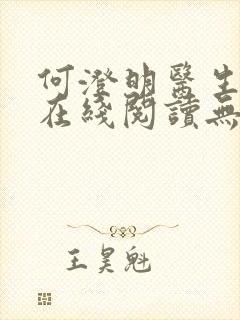 何澄明醫生
在綫閱讀無
王昊魁